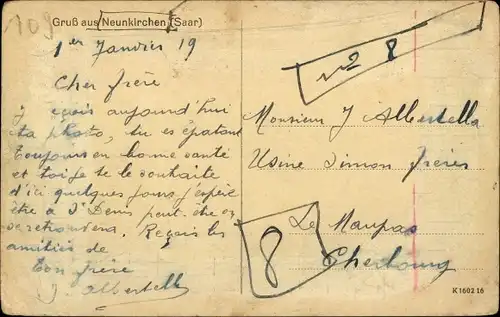 109
Gruß aus Neunkirchen (Saar)
1er Janvier 19
Cher frère
J reçois aujourd'hui
ta photo, tu es épatant
toujours en bonne santé
et je te le souhaite
d'ici quelques jours j'espère
être à St Denis peut-être on
se retrouvera. Reçois les
amitiés de
ton frère
J. Albertella
n2 8
Monsieur J Albertella
Usine Simon frères
Le Maupas
Cherbourg
8
K 1602 16